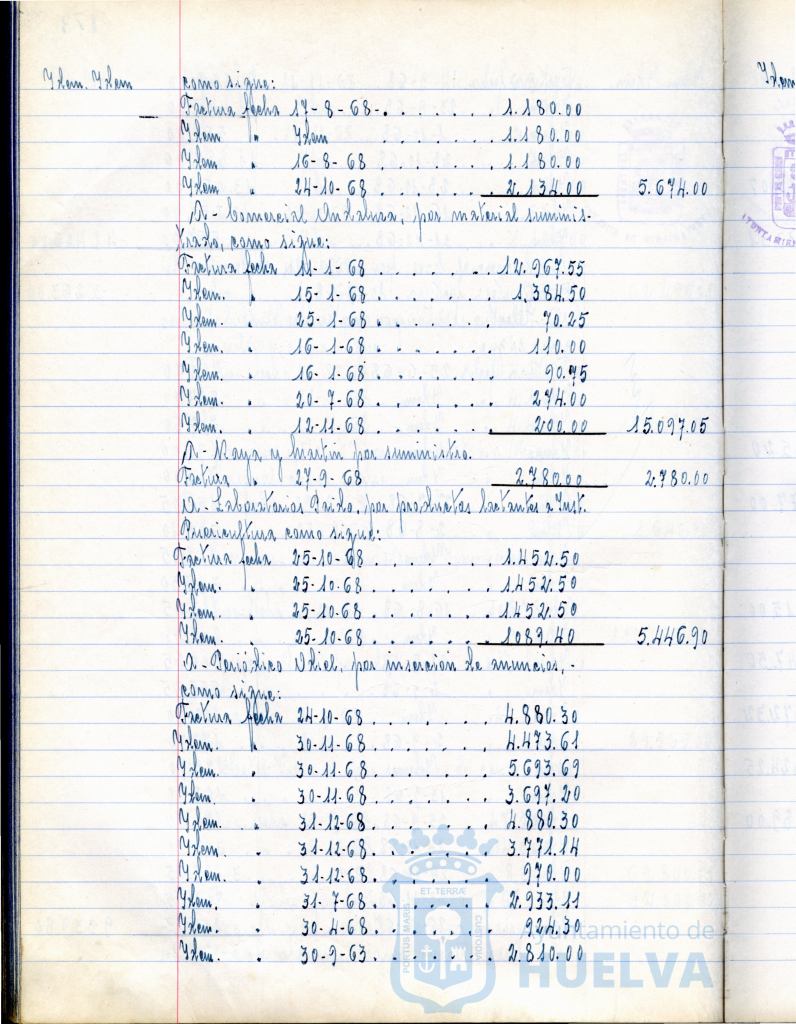 Idem. Idem como sigue:
Factura fecha 17-8-68-. . . . . . 1.180.00
Idem " Idem . . . . . . 1.180.00
Idem " 16-8-68 . . . . . . 1.180.00
Idem " 24-10-68 . . . . . . 2.134.00 5.674.00
A- Comercial Andaluza, por material suminis-
trado, como sigue:
Factura fecha 11-1-68 . . . . . . 12.967.55
Idem. " 15-1-68 . . . . . . 1.384.50
Idem. " 25-1-68 . . . . . . 70.25
Idem. " 16-1-68 . . . . . . 110.00
Idem. " 16-1-68 . . . . . . 90.75
Idem. " 20-7-68 . . . . . . 274.00
Idem. " 12-11-68 . . . . . . 200.00 15.097.05
A- Maya y Martin por suministro.
Factura " 27-9-68 2.780.00 2.780.00
A- Laboratorios por productos lactantes a Inst.
Puericultura como sigue:
Factura fecha 25-10-68 . . . . . . 1.452.50
Idem. " 25-10-68 . . . . . . 1.452.50
Idem. " 25-10-68 . . . . . . 1.452.50
Idem. " 25-10-68 . . . . . . 1089.40 5.446.90
A- Periódico Odiel, por inserción de anuncios,-
como sigue:
Factura fecha 24-10-68 . . . . . . 4.880.30
Idem. " 30-11-68 . . . . . . 4.473.61
Idem. " 30-11-68 . . . . . . 5.693.69
Idem. " 30-11-68 . . . . . . 3.697.20
Idem. " 31-12-68 . . . . . . 4.880.30
Idem. " 31-12-68 . . . . . . 3.771.14
Idem. " 31-12-68 . . . . . . 970.00
Idem. " 31-7-68 . . . . . . 2.933.11
Idem. " 30-4-68 . . . . . . 924.30
Idem. " 30-9-63 . . . . . . 2.810.00
Idem
ET TERRAE
PORTUS MARIS
CUSTODIA
Ayuntamiento de
HUELVA